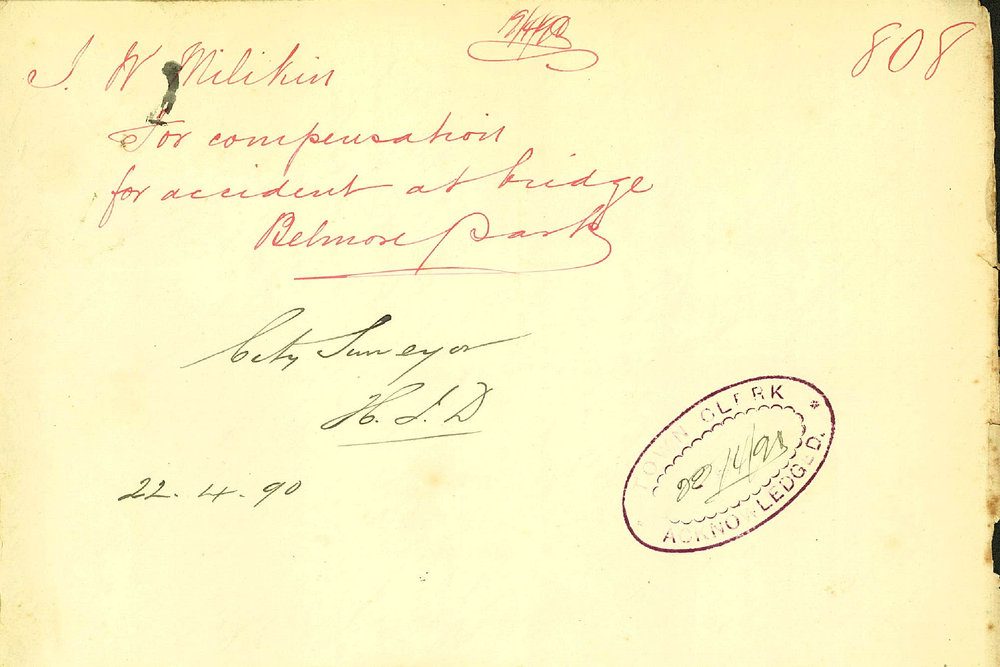 808
J. W Milikin
For compensation
for accident at bridge
Belmore Park
City Surveyor
H. J. D
22. 4. 90
TOWN CLERK
ACKNOWLEDGED.